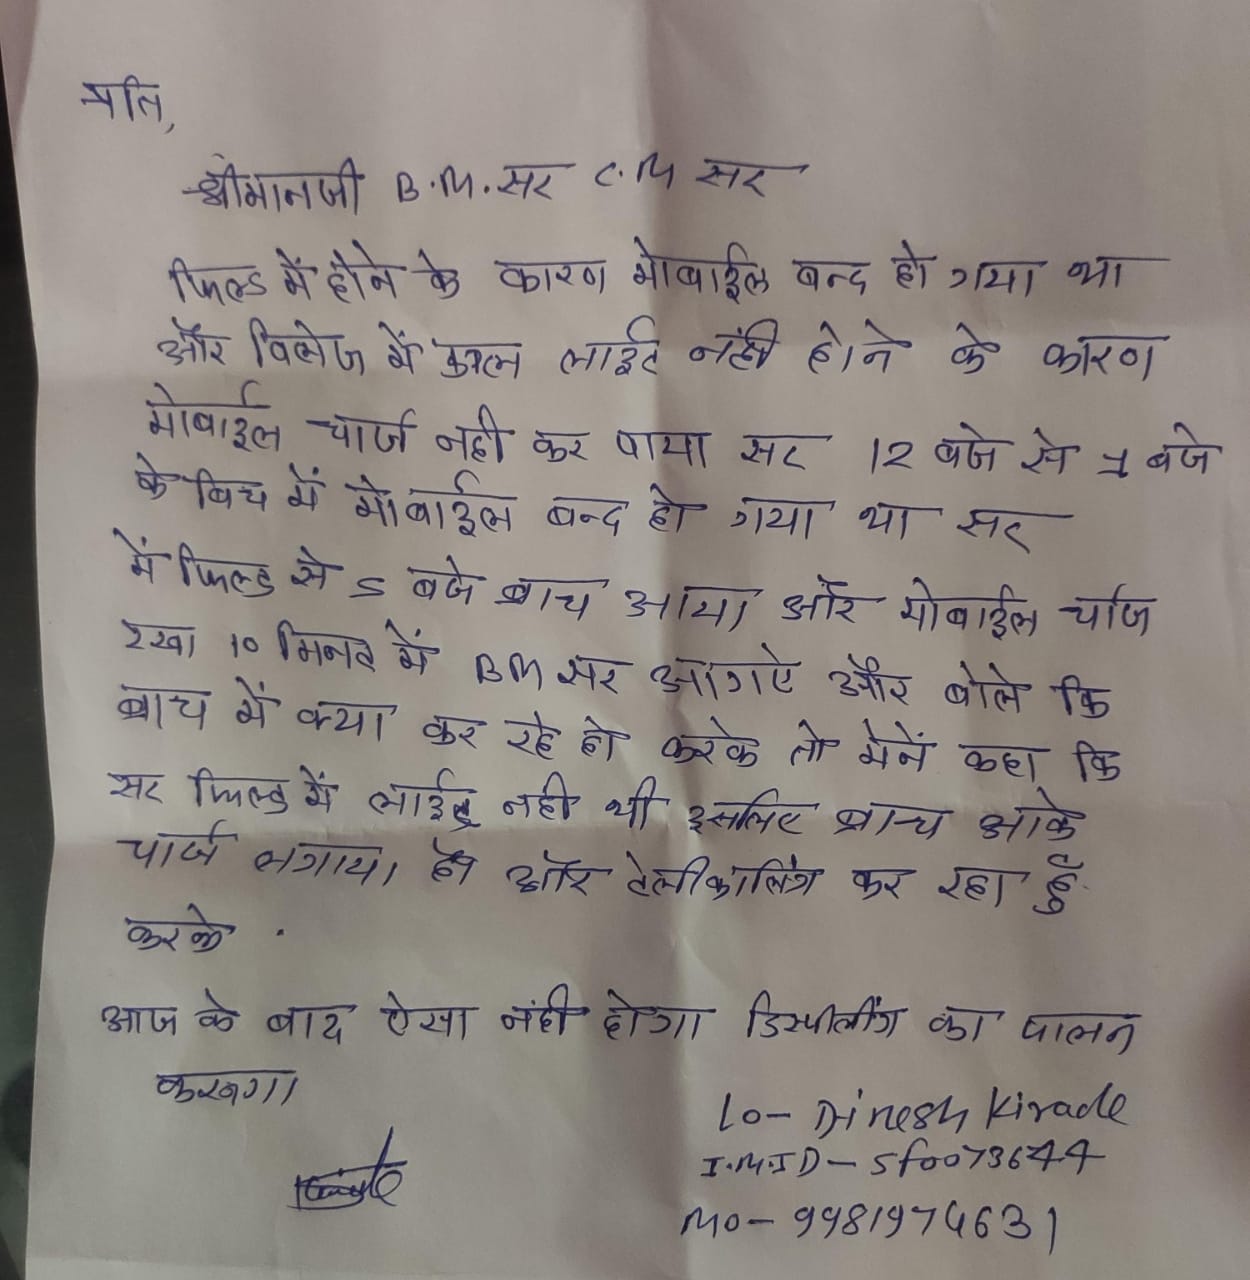 प्रति,
श्रीमानजी B.M. सर C.M सर
फिल्ड में होने के कारण मोबाईल बन्द हो गया था
और विलेज में कल लाईट नंही होने के कारण
मोबाईल चार्ज नही कर पाया सर 12 बजे से 1 बजे
के बिच में मोबाईल बन्द हो गया था सर
में फिल्ड से 5 बजे ब्राच आया और मोबाईल चार्ज
रखा 10 मिनट में BM सर आगऐ और बोले कि
ब्राच में क्या कर रहे हो करके तो मेनें कहा कि
सर फिल्ड में लाईट नही थी इसलिए ब्रान्च आके
चार्ज लगाया हो और टेलीकालिंग कर रहा हुँ
करके .
आज के बाद ऐसा नंही होगा डिस्पीलींग का पालन
करुगा
LO- Dinesh Kirade
I.M.ID- Sf0073644
MO-